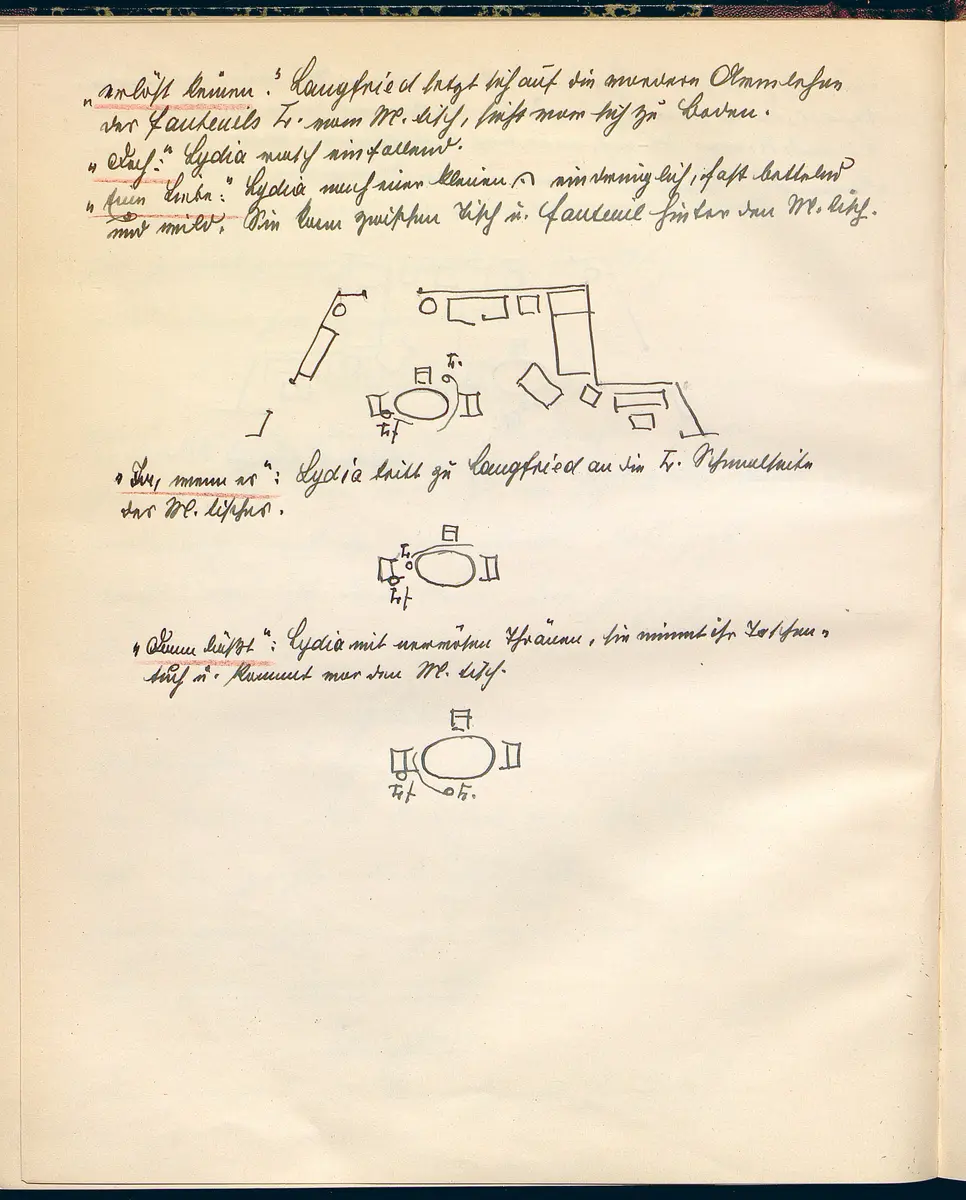 „erlöst keinen": Langfried setzt sich auf die vordere Armlehne
des Fauteuils L. vom M. tisch, sieht vor sich zu Boden.
„Doch:" Lydia rasch einfallend.
Liebe:" Lydia nach einer kleinen 𝄐 eindringlich, fast bettelnd
und mild. Sie kam zwischen Tisch u. Fauteuil hinter den M. tisch.
L.
Lf
„Ja, wenn er": Lydia tritt zu Langfried an die L. Schmalseite
des M. tisches.
L.
Lf
„Dann läßt": Lydia mit nervösen Thränen, sie nimmt ihr Taschen-
tuch u. kommt vor den M. tisch.
Lf
L.